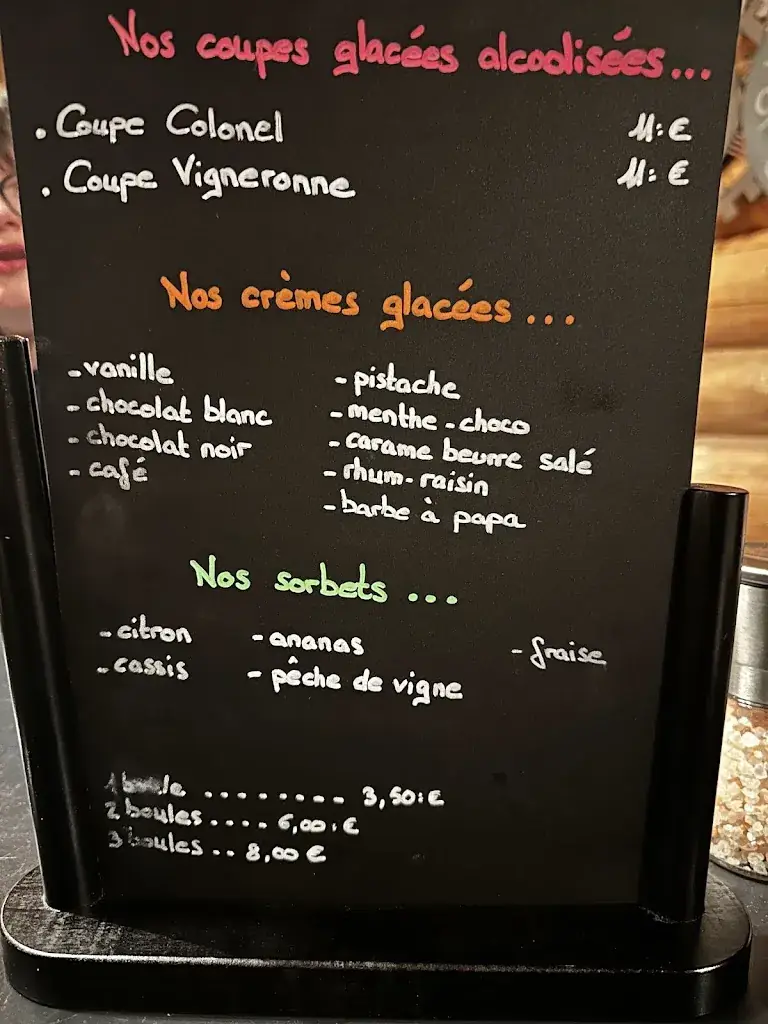 Nos coupes glacées alcoolisées...
. Coupe Colonel 11:€
. Coupe Vigneronne 11:€
Nos crèmes glacées...
- vanille - pistache
- chocolat blanc - menthe-choco
- chocolat noir - carame beurre salé
- café - rhum-raisin
- barbe à papa
Nos sorbets ...
- citron - ananas - fraise
- cassis - pêche de vigne
1 boule ........ 3,50:€
2 boules .... 6,00:€
3 boules .. 8,00 €